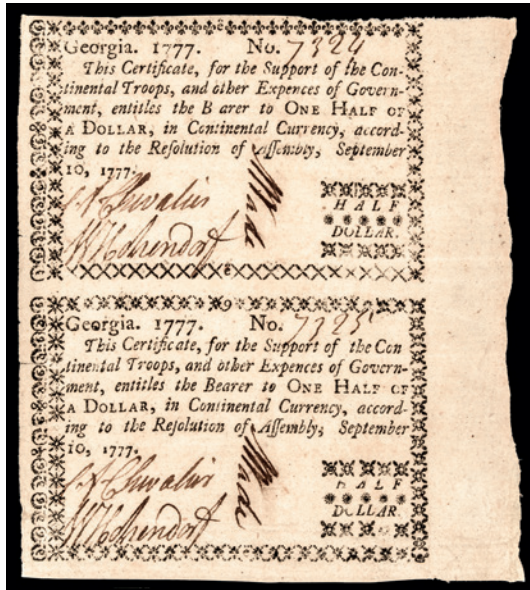 Georgia. 1777. No. 7324
This Certificate, for the Support of the Con-
tinental Troops, and other Expences of Govern-
ment, entitles the B arer to ONE HALF OF
A DOLLAR, in Continental Currency, accord-
ing to the Resolution of Assembly, September
10, 1777.
HALF
DOLLAR.
Georgia. 1777. No. 7325
This Certificate, for the Support of the Con
tinental Troops, and other Expences of Govern-
ment, entitles the Bearer to ONE HALF OF
A DOLLAR, in Continental Currency, accord-
ing to the Resolution of Assembly, September
10, 1777.
HALF
DOLLAR.